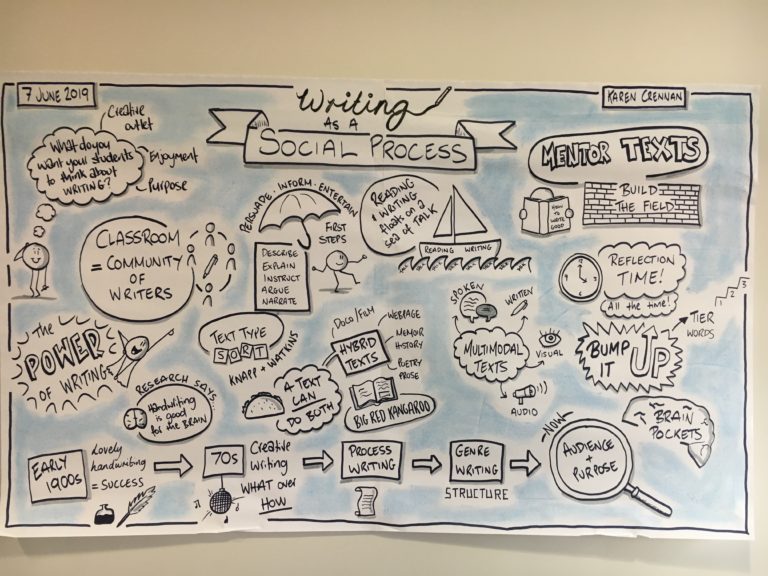 7 JUNE 2019
Writing
AS A
SOCIAL PROCESS
KAREN CRENNAN
What do you
want your students
to think about
WRITING?
Creative
outlet
Enjoyment
Purpose
CLASSROOM
= COMMUNITY
OF
WRITERS
PERSUADE · INFORM · ENTERTAIN
DESCRIBE
EXPLAIN
INSTRUCT
ARGUE
NARRATE
FIRST
STEPS
READING
+ WRITING
floats on a
sea of TALK
READING WRITING
MENTOR TEXTS
HOW
TO
WRITE
GOOD
BUILD
THE FIELD
REFLECTION
TIME!
All the time!
THE
POWER
OF WRITING
RESEARCH SAYS...
Handwriting
is good
for the BRAIN
TEXT TYPE
SORT
KNAPP + WATKINS
A TEXT
CAN
DO BOTH
DOCO/FILM
HYBRID
TEXTS
WEBPAGE
MEMOIR
HISTORY
POETRY
PROSE
BIG RED KANGAROO
SPOKEN
WRITTEN
MULTIMODAL
TEXTS
VISUAL
AUDIO
BUMP
IT
UP
1 2 3
TIER
WORDS
BRAIN
POCKETS
EARLY
1900s
Lovely
handwriting
= SUCCESS
70s
Creative
Writing
WHAT OVER
HOW
PROCESS
WRITING
GENRE
WRITING
STRUCTURE
NOW
AUDIENCE
+
PURPOSE